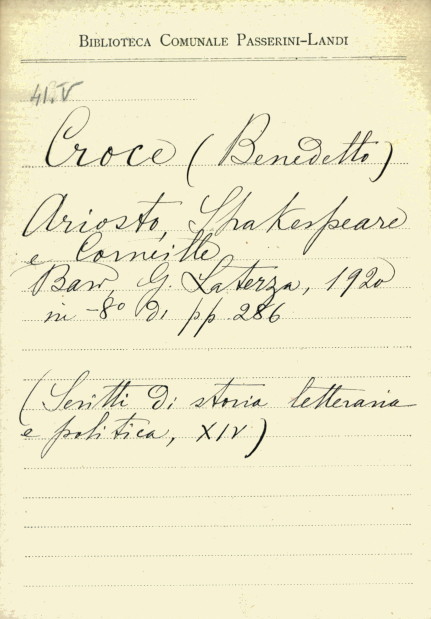 BIBLIOTECA COMUNALE PASSERINI-LANDI
41.V
Croce (Benedetto)
Ariosto, Shakespeare
e Corneille
Bari, G. Laterza, 1920
in -8° di pp. 286
(Scritti di storia letteraria
e politica, XIV)